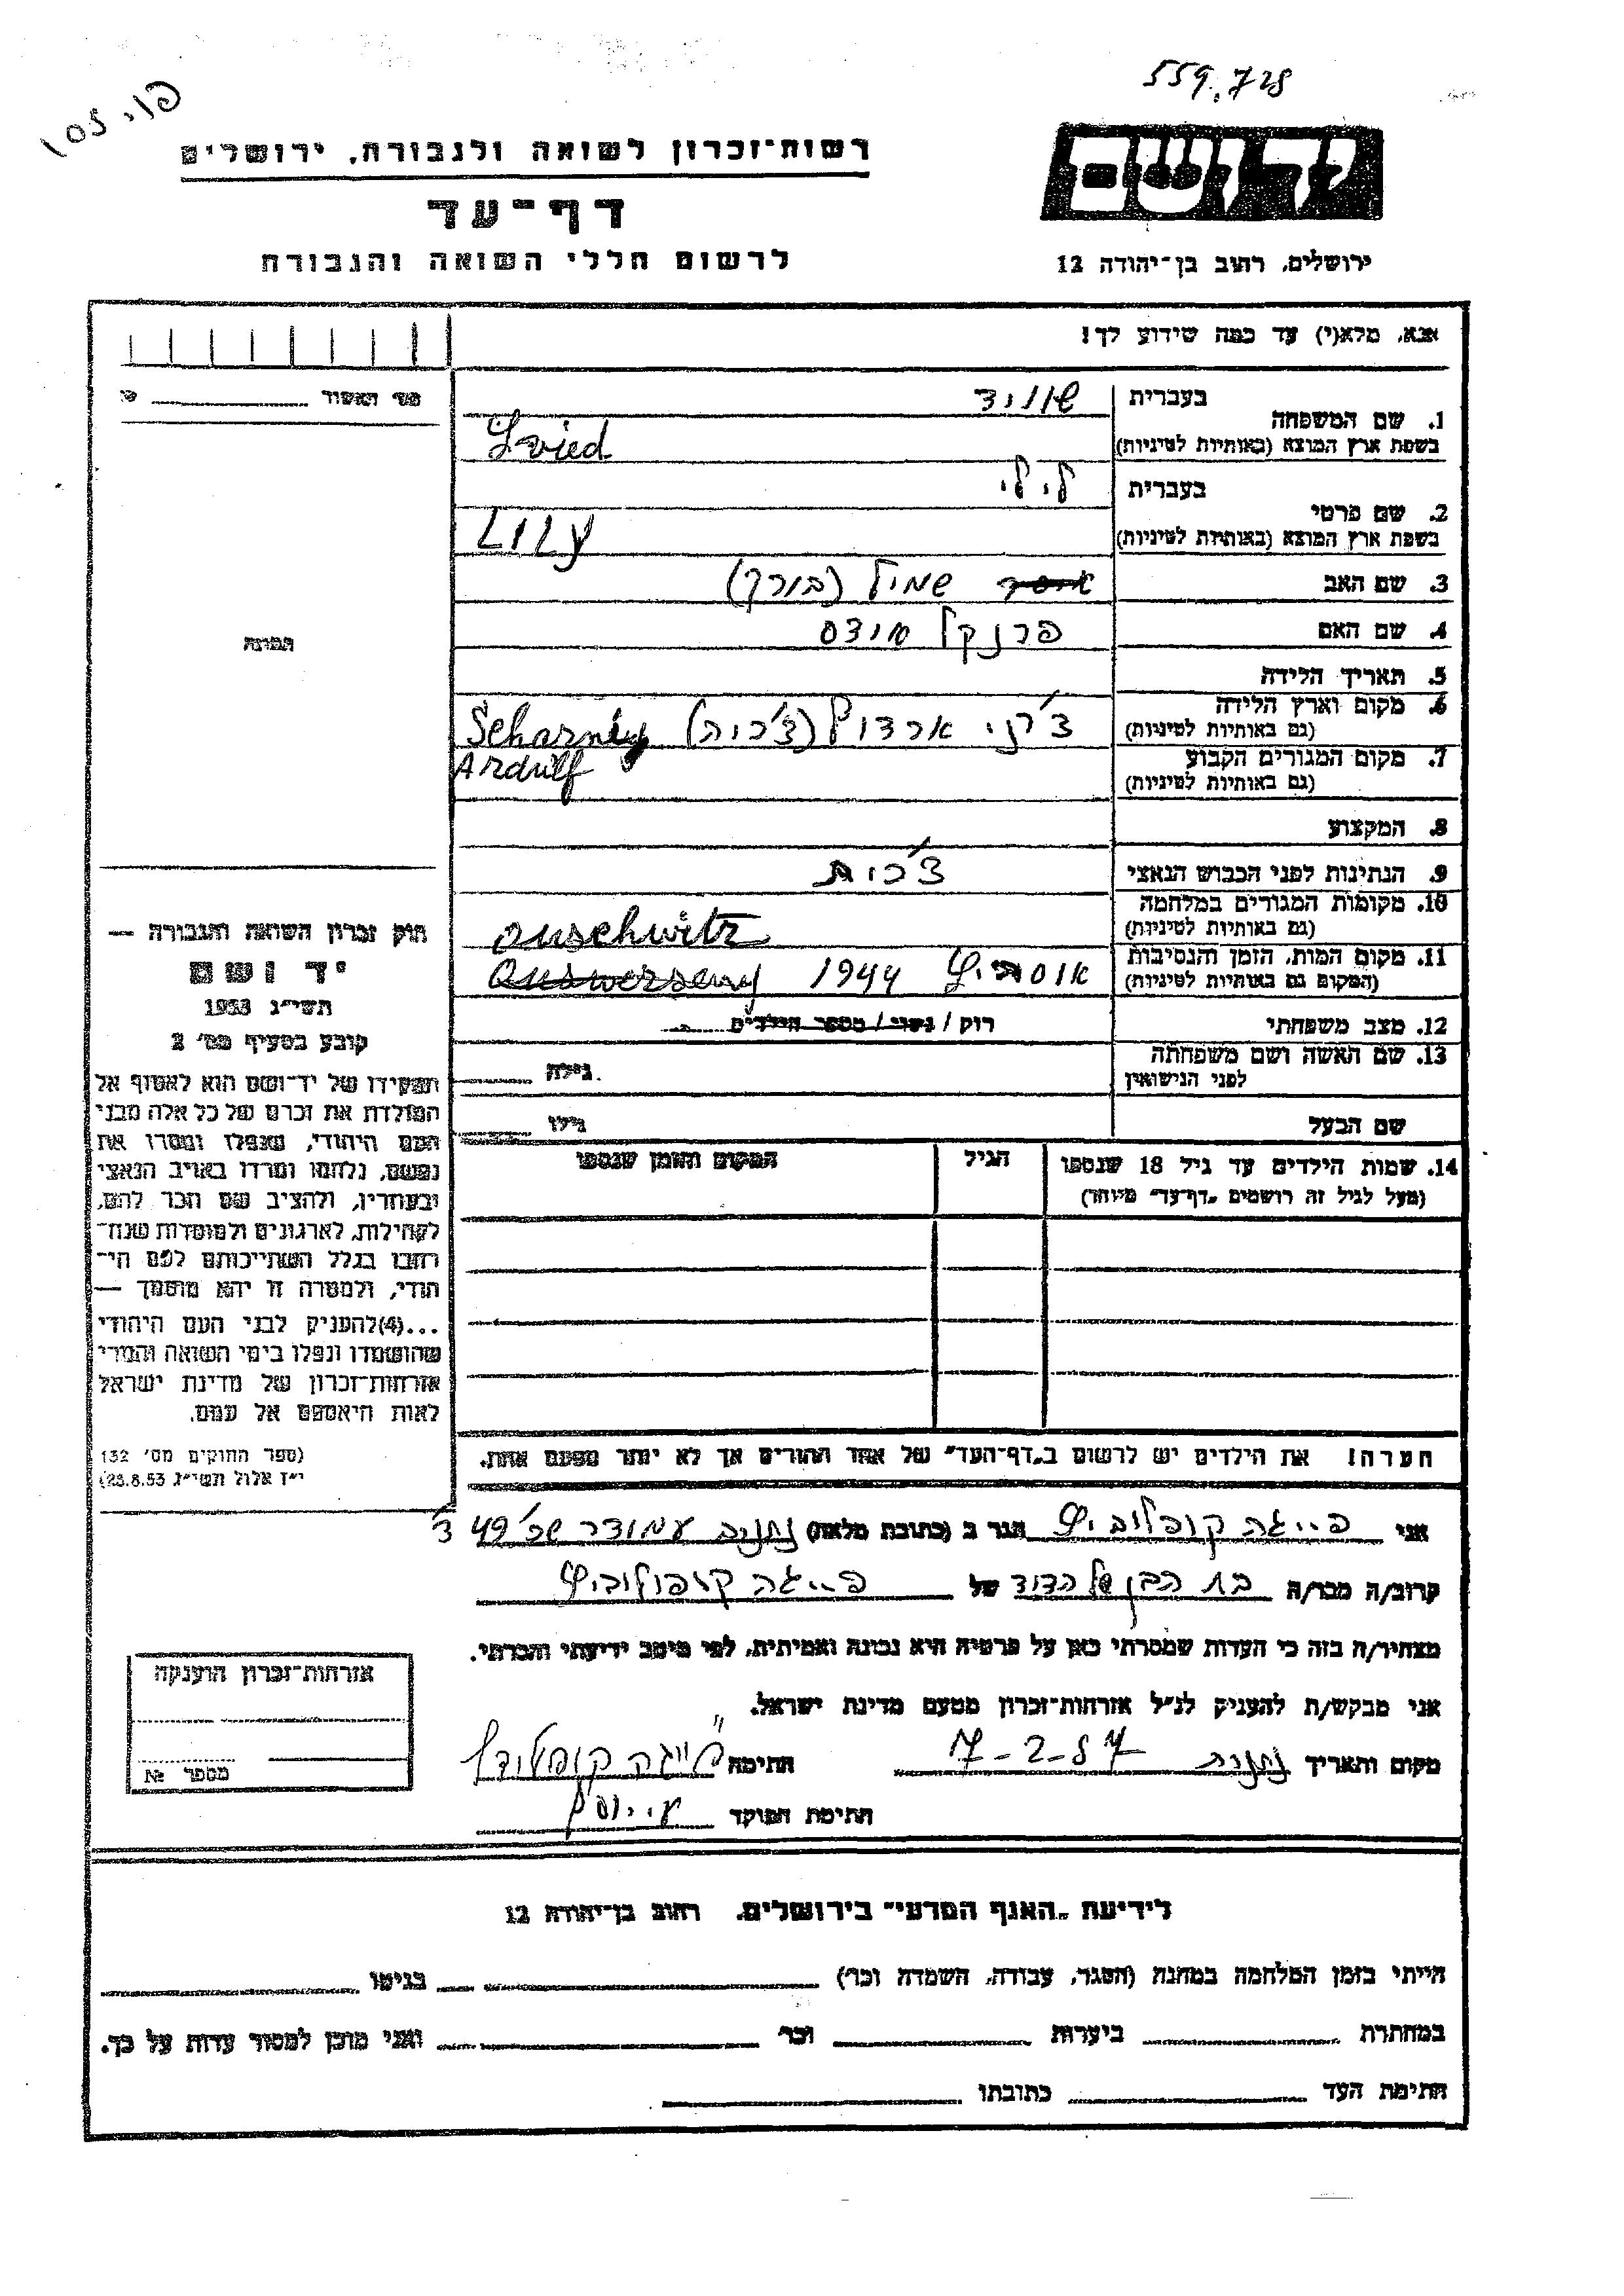 559.728
רשות־זכרון לשואה ולגבורה, ירושלים
יד ושם
דף־עד
לרשום חללי השואה והגבורה
ירושלים, רחוב בן־יהודה 12
אנא, מלא(י) עד כמה שידוע לך!
1. שם המשפחה
בעברית
בשפת ארץ המוצא (באותיות לטיניות)
2. שם פרטי
בעברית לילי
בשפת ארץ המוצא (באותיות לטיניות) LILY
3. שם האב שמיל
4. שם האם פרנקל
5. תאריך הלידה
6. מקום וארץ הלידה צ'רני ארדולף (צ'כיה) Scharniy
(גם באותיות לטיניות)
Ardulf
7. מקום המגורים הקבוע
(גם באותיות לטיניות)
8. המקצוע
9. הנתינות לפני הכבוש הנאצי צ'כית
10. מקומות המגורים במלחמה ouschwitz
(גם באותיות לטיניות)
11. מקום המות, הזמן והנסיבות 1944
(המקום גם באותיות לטיניות)
12. מצב משפחתי רוק / נשוי / מספר הילדים
13. שם האשה ושם משפחתה גילה
לפני הנישואין
שם הבעל גילו
14. שמות הילדים עד גיל 18 שנספו הגיל המקום והזמן שנספו
(מעל לגיל זה רושמים „דף־עד” מיוחד)
הערה! את הילדים יש לרשום ב„דף־העד” של אחד ההורים אך לא יותר מפעם אחת.
התמונה
חוק זכרון השואה והגבורה —
יד ושם
תשי״ג 1953
קובע בסעיף מס׳ 2
תפקידו של יד־ושם הוא לאסוף אל
המולדת את זכרם של כל אלה מבני
העם היהודי, שנפלו ומסרו את
נפשם, נלחמו ומרדו באויב הנאצי
ובעוזריו, ולהציב שם וזכר להם,
לקהילות, לארגונים ולמוסדות שנח־
רבו בגלל השתייכותם לעם הי־
הודי, ולמטרה זו יהא מוסמך —
...(4)להעניק לבני העם היהודי
שהושמדו ונפלו בימי השואה והמרי
אזרחות־זכרון של מדינת ישראל
לאות היאספם אל עמם.
(ספר החוקים מס׳ 132
י״ז אלול תשי״ג 28.8.53)
אני פייגה קופלוביץ הגר ב (כתובת מלאה) 49
קרוב/ה מכר/ה בת הבן של הדוד של פייגה קופולוביץ
מצהיר/ה בזה כי העדות שמסרתי כאן על פרטיה היא נכונה ואמיתית, לפי מיטב ידיעתי והכרתי.
אני מבקש/ת להעניק לנ״ל אזרחות־זכרון מטעם מדינת ישראל.
מקום ותאריך נתניה 7-2-57 חתימה פייגה
חתימת הפוקד
אזרחות־זכרון הוענקה
מספר №
לידיעת „האגף המדעי” בירושלים, רחוב בן־יהודה 12
הייתי בזמן המלחמה במחנה (הסגר, עבודה, השמדה וכו׳) בגיטו
במחתרת ביערות וכו׳ ואני מוכן למסור עדות על כך.
חתימת העד כתובתו